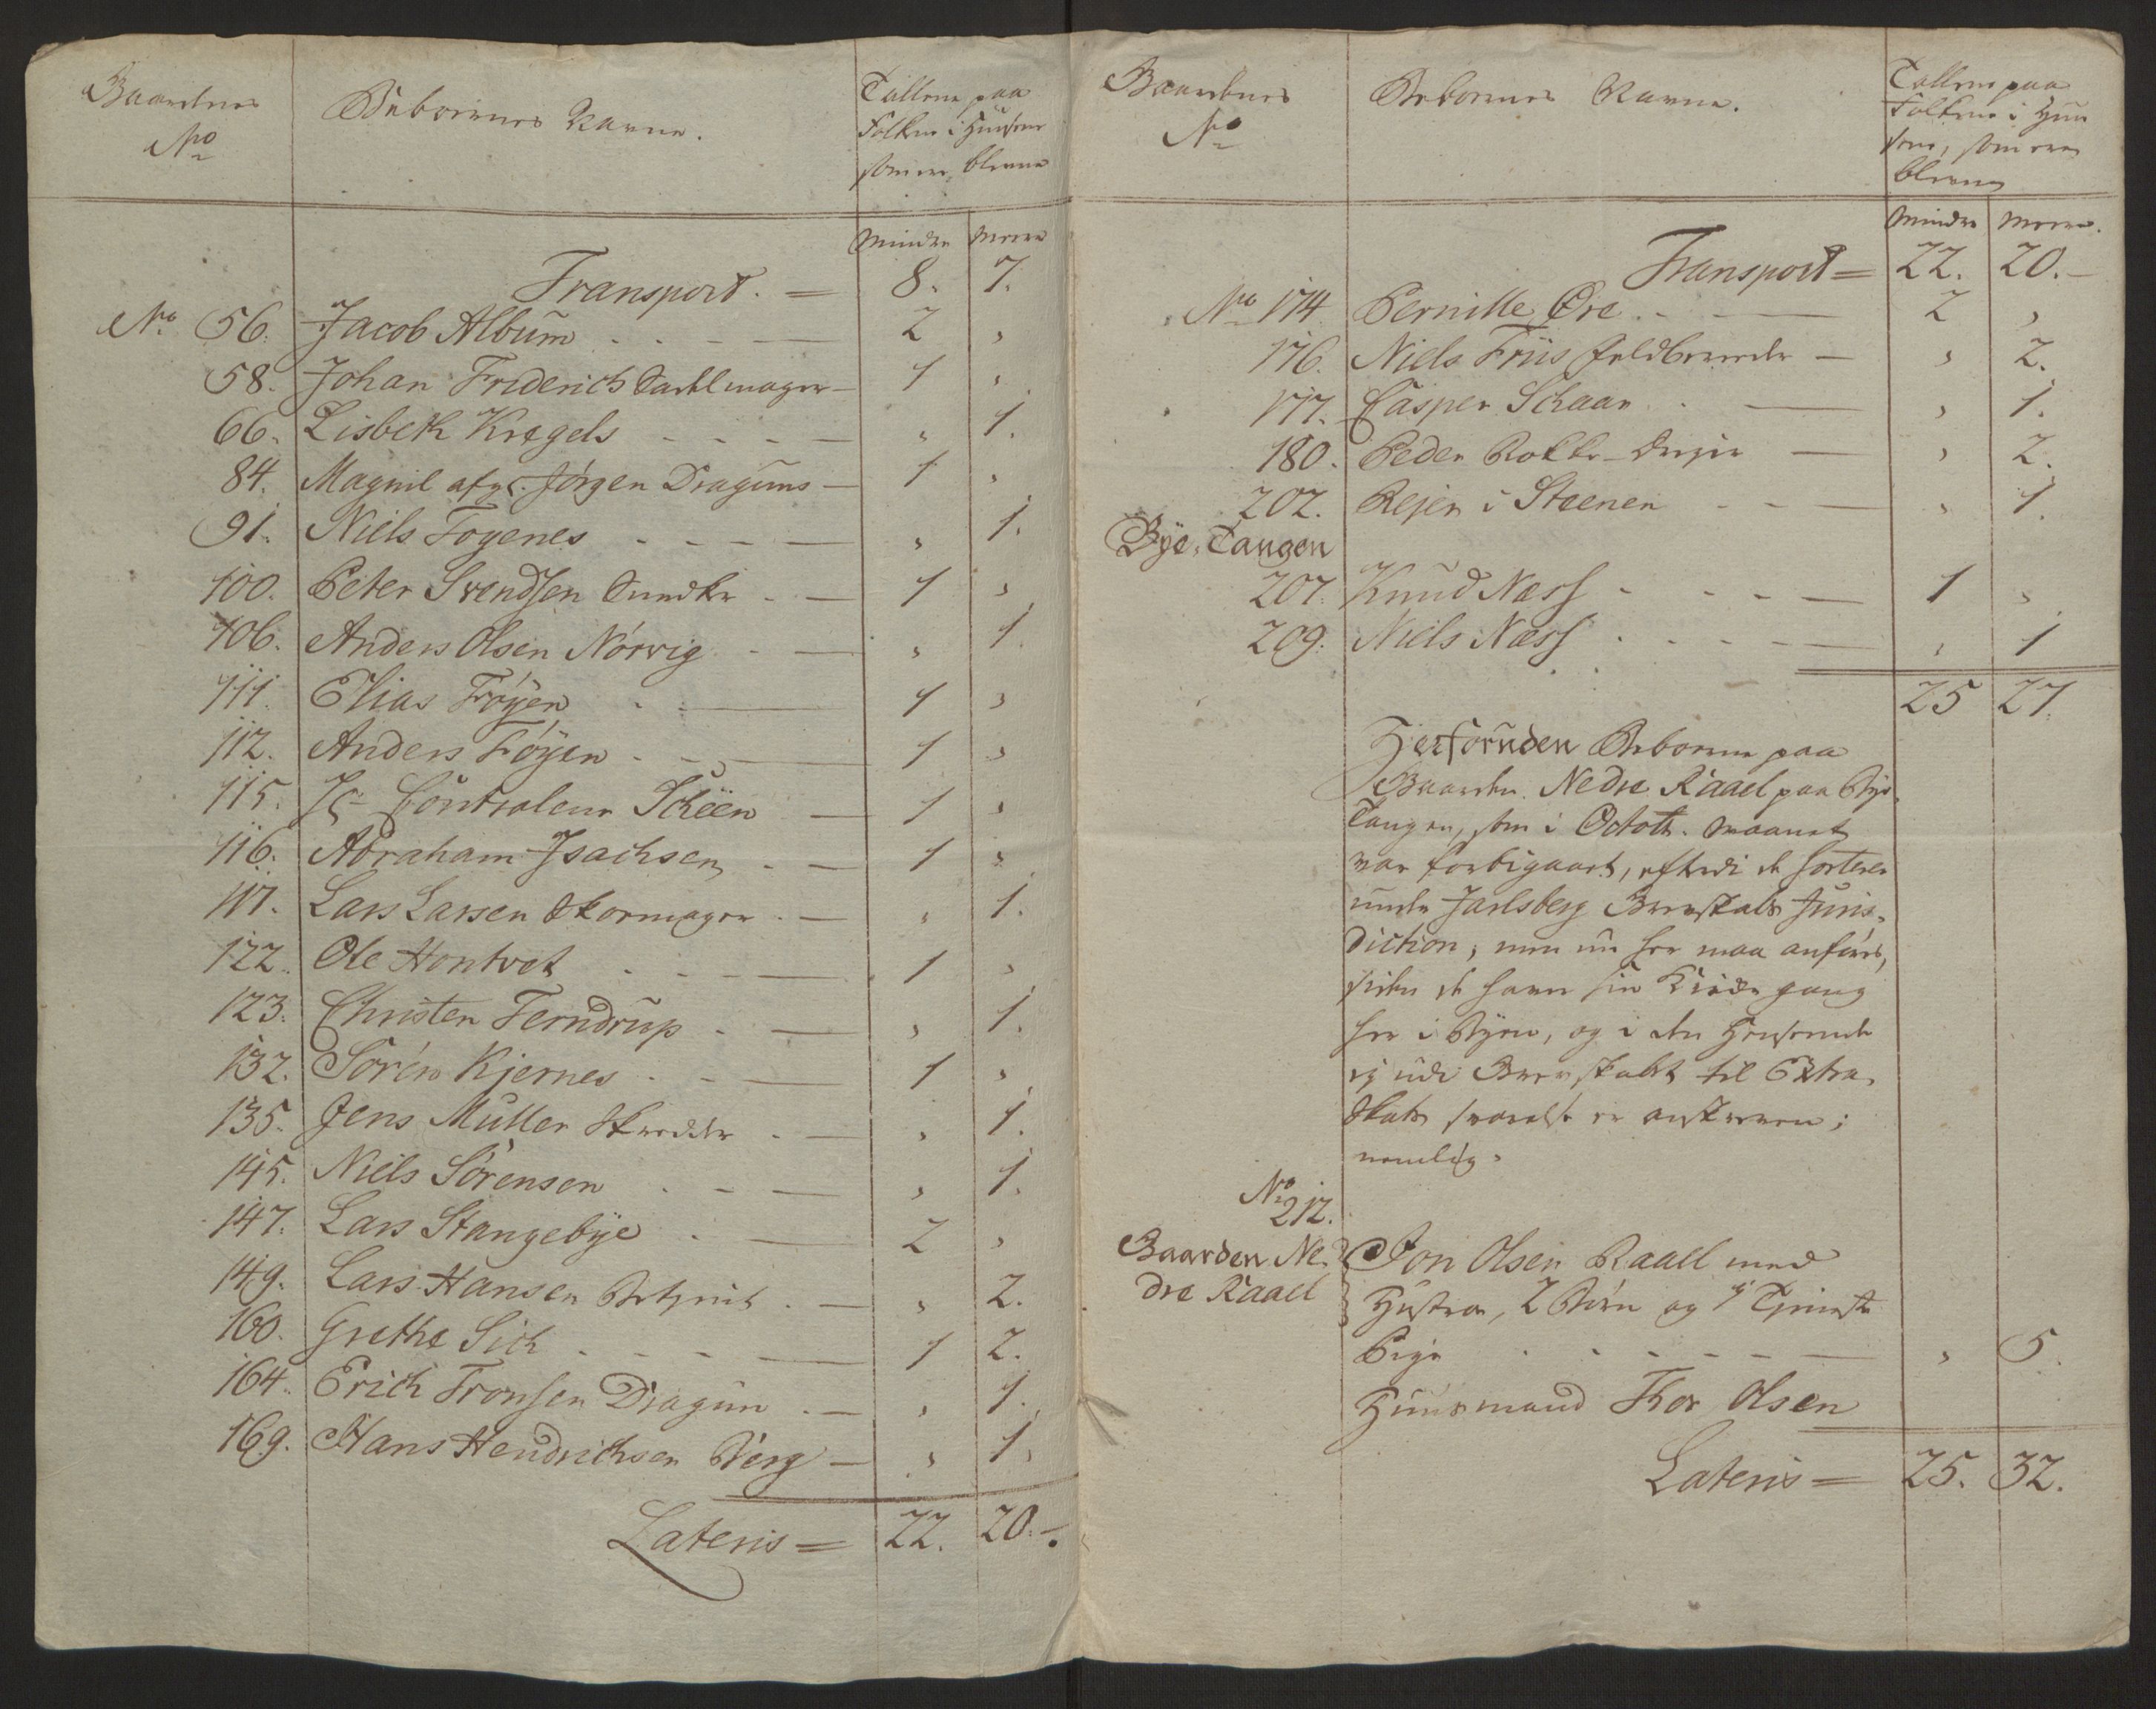 Gaardenes
No
Beboernes Navne.
Tallene paa
Folkene i Huusene
som ere blevne
Mindre Meere
Transport. = 8. 7.
No 56. Jacob Album . . - - — 2 "
58. Johan Friderich Sadelmager — 1 "
66. Lisbeth Kregels - - - — " 1.
84. Magnil afg. Jörgen Draguns — 1 "
91. Niels Foyenes . - - - — " 1.
100. Peter Svendsen Snedker - — 1 "
106. Anders Olsen Nörvig - — " 1.
111. Elias Föyen . - — 1 "
112. Anders Föyen - - — 1 "
115. Hr Controleur Scheen — 1 "
116. Abraham Isachsen - — 1 "
117. Lars Larsen Skoemager . — " 1.
122. Ole Hontvet . - - — 1 "
123. Christen Ferndrup - — " 1.
132. Sören Kjernes . - — 1 "
135. Jens Müller Skredder . — " 1.
145. Niels Sörensen . - — " 1.
147. Lars Stangebye . — 2 "
149. Lars Hansen Betjent . — " 2.
160. Grethe Sich . - - - — 1 2.
164. Erich Tronsen Dragun . — " 1.
169. Hans Hendrichsen Berg — " 1.
Lateris = 22. 20.-.
Gaardenes
No
Beboernes Navne.
Tallene paa
Folkene i Huu
sene, som ere
blevne
Mindre Meere.
Transport = 22. 20.-
No 174 Pernille Öre . - — 2 "
176. Niels Friis Feldbereder — " 2.
177. Casper Schaar . — " 1.
180. Peder Rokke-Dreyer — " 2.
202. Rejer i Steenen - - — " 1.
Bye-Tangen
207. Knud Næss - - - — 1 "
209. Niels Næss . - - - — " 1
25 27.
Herforuden Beboerne paa
Gaarden Nedre Raael paa Bye-
Tangen, som i Octobr. Maanet
var forbigaaet, efterdi de sorterer
under Jarlsberg Grevskabs Juris-
diction, men nu her maa anföres,
siden de haver sin Kirke gang
her i Byen, og i den Henseende
ej udi Grevskabet til Extra
Skatts svarelse er anskreven;
nemlig.
No
212.
Gaarden Ne-
dre Raael
Jon Olsen Raael med
Hustroe, 2 Börn og 1 Tjeneste
Pige . - - - - — " 5.
Huusmand Thor Olsen
Lateris = 25. 32.